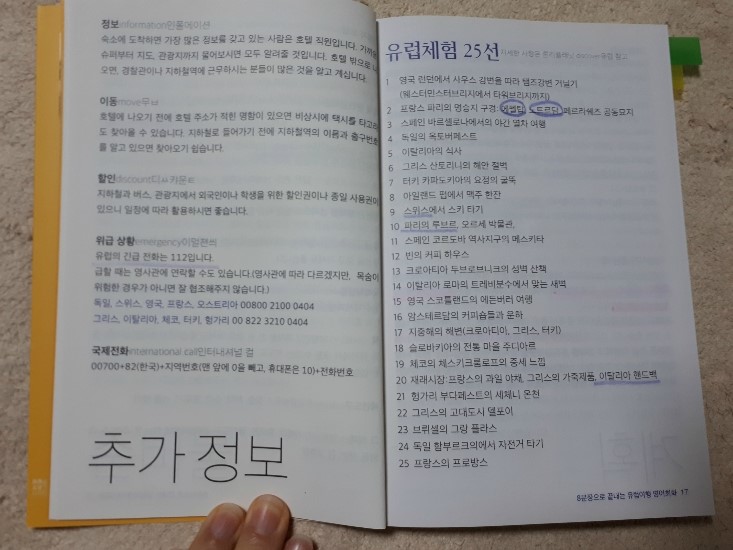 정보information인포메이션
숙소에 도착하면 가장 많은 정보를 갖고 있는 사람은 호텔 직원입니다. 가까운
슈퍼부터 지도, 관광지까지 물어보시면 모두 알려줄 것입니다. 호텔 밖으로 나
오면, 경찰관이나 지하철역에 근무하시는 분들이 많은 것을 알고 계십니다.
이동move무브
호텔에 나오기 전에 호텔 주소가 적힌 명함이 있으면 비상시에 택시를 타고라
도 찾아올 수 있습니다. 지하철로 들어가기 전에 지하철역의 이름과 출구번호
를 알고 있으면 찾아오기 쉽습니다.
할인discount디ㅆ카운ㅌ
지하철과 버스, 관광지에서 외국인이나 학생을 위한 할인권이나 종일 사용권이
있으니 일정에 따라 활용하시면 좋습니다.
위급 상황emergency이멀젼씨
유럽의 긴급 전화는 112입니다.
급할 때는 영사관에 연락할 수도 있습니다.(영사관에 따라 다르겠지만, 목숨이
위험한 경우가 아니면 잘 협조해주지 않습니다.)
독일, 스위스, 영국, 프랑스, 오스트리아 00800 2100 0404
그리스, 이탈리아, 체코, 터키, 헝가리 00 822 3210 0404
국제전화international call인터내셔널 컬
00700+82(한국)+지역번호(맨 앞에 0을 빼고, 휴대폰은 10)+전화번호
추가 정보
유럽체험 25선
1 영국 런던에서 사우스 강변을 따라 템즈강변 거닐기
(웨스터민스터브리지에서 타워브리지까지)
2 프랑스 파리의 명승지 구경: 에펠탑, 노트르담, 페르라쉐즈 공동묘지
3 스페인 바르셀로나에서의 야간 열차 여행
4 독일의 옥토버페스트
5 이탈리아의 식사
6 그리스 산토리니의 해안 절벽
7 터키 카파도키아의 요정의 굴뚝
8 아일랜드 펍에서 맥주 한잔
9 스위스에서 스키 타기
10 파리의 루브르, 오르세 박물관,
11 스페인 코르도바 역사지구의 메스키타
12 빈의 커피 하우스
13 크로아티아 두브로브니크의 성벽 산책
14 이탈리아 로마의 트레비분수에서 맞는 새벽
15 영국 스코틀랜드의 에든버러 여행
16 암스테르담의 커피숍들과 운하
17 지중해의 해변(크로아티아, 그리스, 터키)
18 슬로바키아의 전통 마을 주디아르
19 체코의 체스키크룸로프의 중세 느낌
20 재래시장:프랑스의 과일 야채, 그리스의 가죽제품, 이탈리아 핸드백
21 헝가리 부다페스트의 세체니 온천
22 그리스의 고대도시 델포이
23 브뤼셀의 그랑 플라스
24 독일 함부르크의에서 자전거 타기
25 프랑스의 프로방스
8문장으로 끝내는 유럽여행 영어회화 17